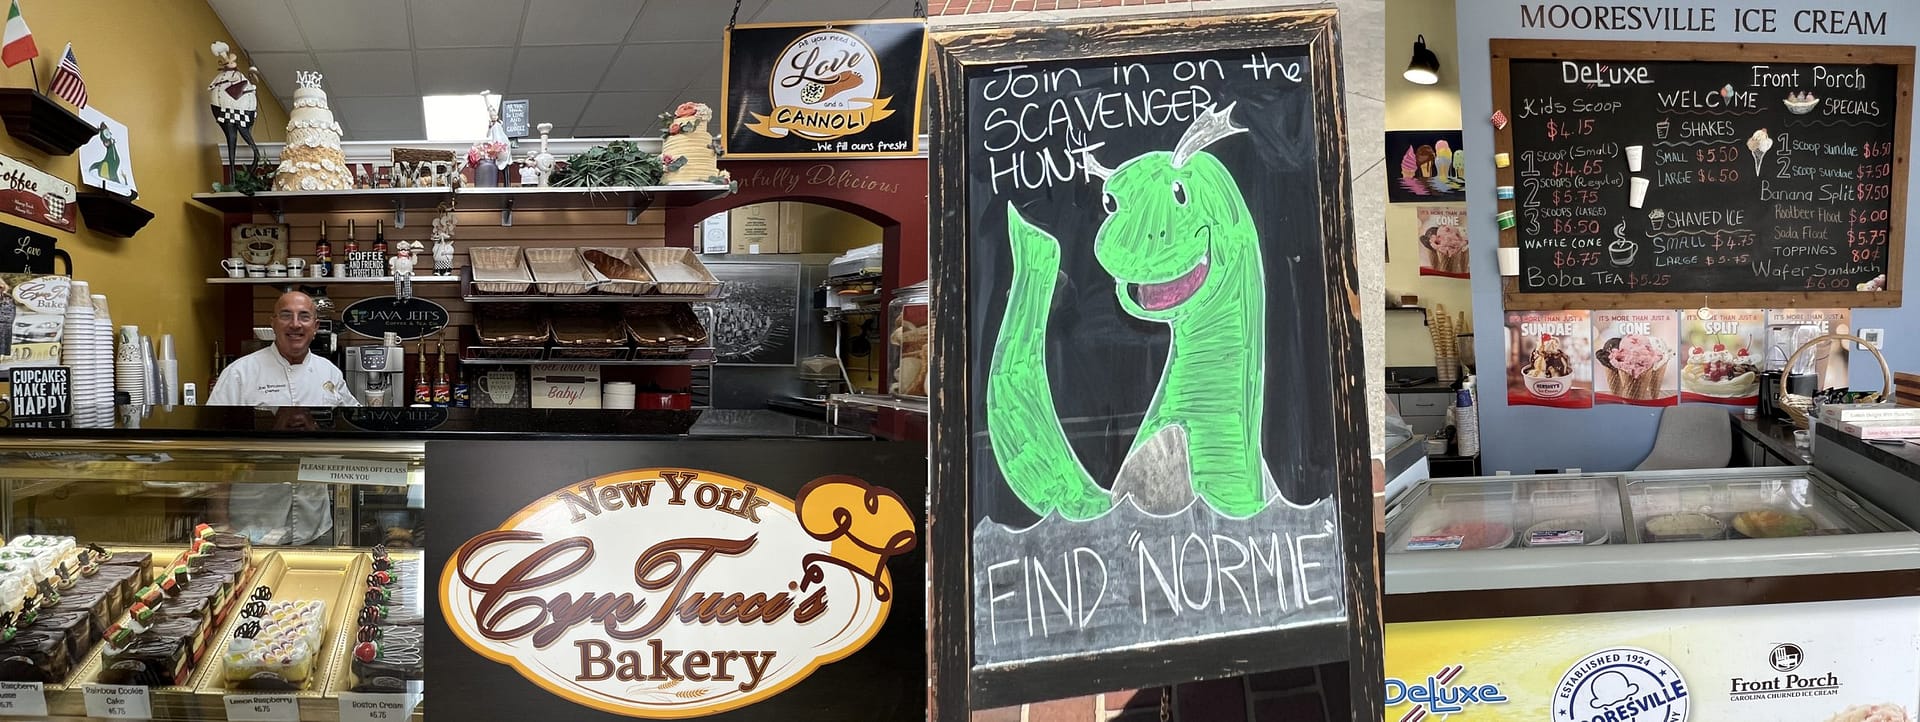 All you need is
Love
and a
CANNOLI
...We fill ours fresh!
Mr&
Delicious
Coffee
Love
is
CAFÉ
COFFEE
AND FRIENDS
A PERFECT BLEND
JAVA JEFF'S
COFFEE & TEA CO.
Roll with it
Baby!
CUPCAKES
MAKE ME
HAPPY
PLEASE KEEP HANDS OFF GLASS
THANK YOU
New York
CynTucci's
Bakery
Raspberry
$6.75
Rainbow Cookie
Cake
$6.75
Lemon Raspberry
$6.75
Boston Cream
$6.75
Join in on the
SCAVENGER
HUNT
FIND "NORMIE"
MOORESVILLE ICE CREAM
DeLuxe
Front Porch
Kids Scoop
$4.15
1 SCOOP (Small)
$4.65
2 SCOOPS (Regular)
$5.75
3 SCOOPS (LARGE)
$6.50
WAFFLE CONE
$6.75
BOBA TEA $5.25
WELCOME
SHAKES
SMALL $5.50
LARGE $6.50
SHAVED ICE
SMALL $4.75
LARGE $5.75
SPECIALS
1 SCOOP sundae $6.50
2 SCOOP sundae $7.50
Banana Split $9.50
Rootbeer Float $6.00
Soda Float $5.75
TOPPINGS 80¢
Wafer Sandwich
$6.00
IT'S MORE THAN JUST A
CONE
IT'S MORE THAN JUST A
SUNDAE
HERSHEY'S
IT'S MORE THAN JUST A
CONE
IT'S MORE THAN JUST A
SPLIT
IT'S MORE THAN JUST A
DeLuxe
ESTABLISHED 1924
MOORESVILLE
Front Porch
CAROLINA CHURNED ICE CREAM